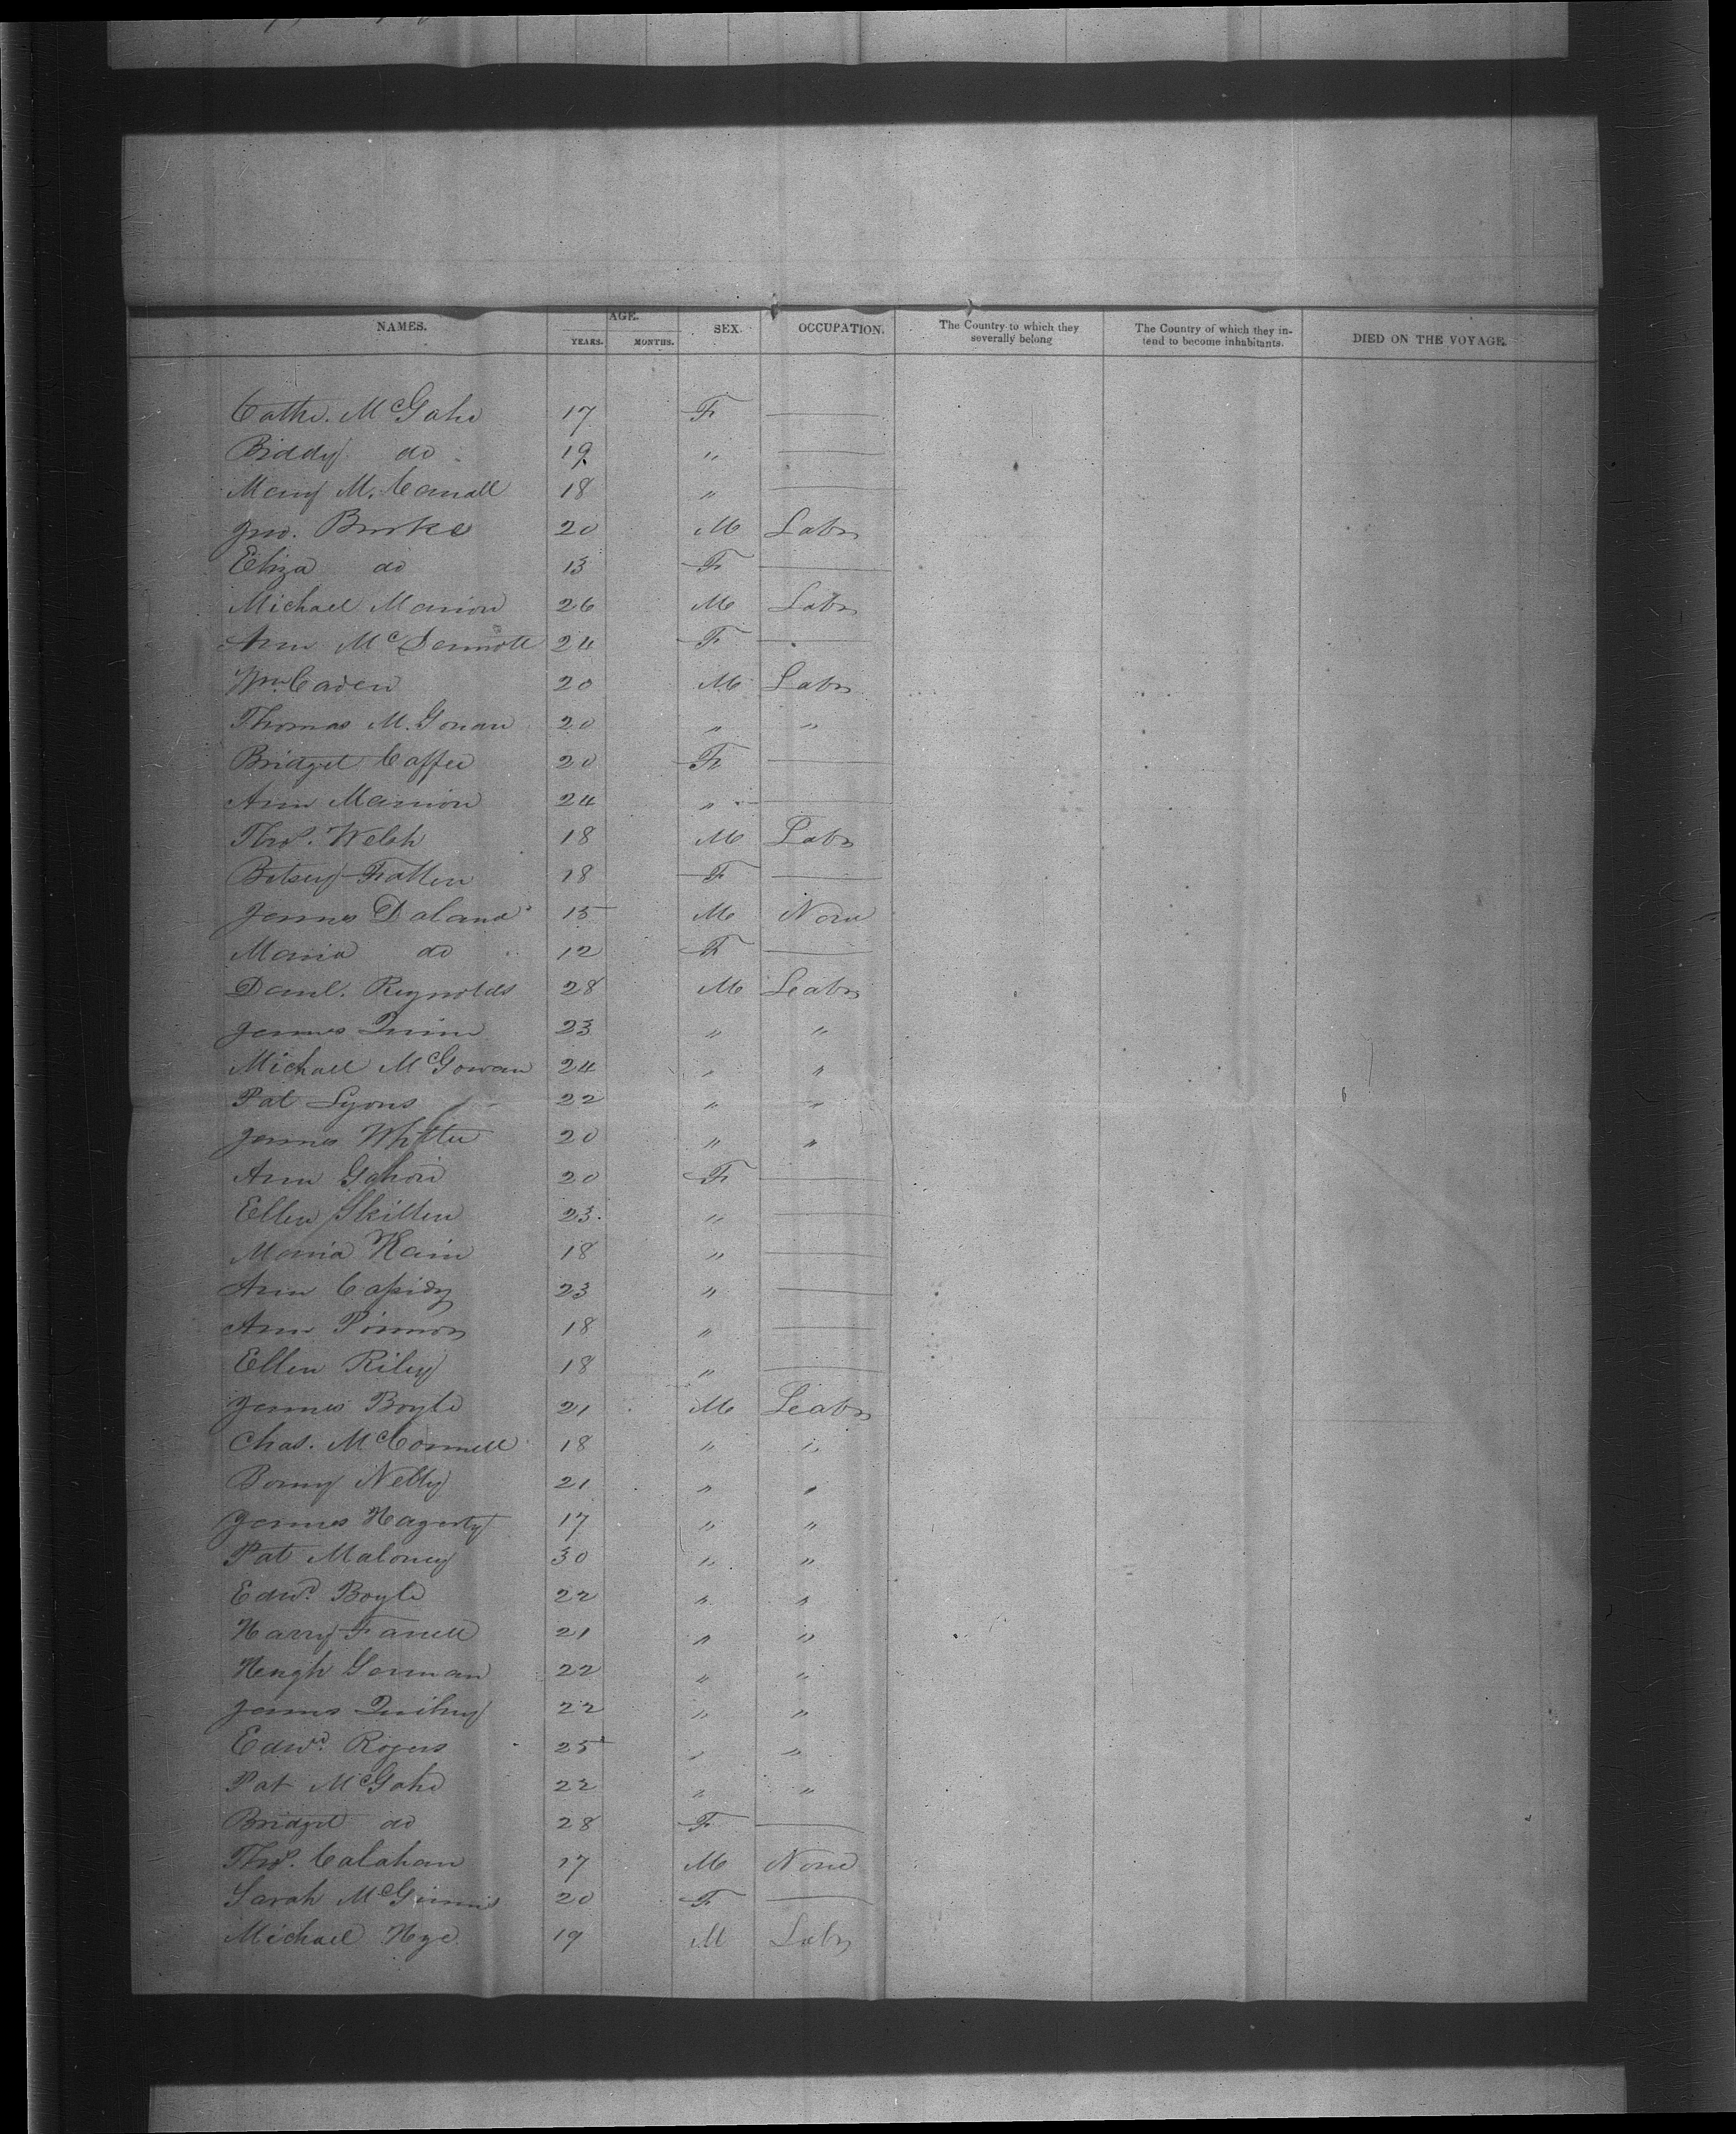 NAMES. AGE. SEX. OCCUPATION. The Country to which they severally belong The Country of which they intend to become inhabitants. DIED ON THE VOYAGE.
YEARS. MONTHS.
Cathe. McGahe 17 F ——
Biddy do 19 " ——
Mary M. Canall 18 " ——
Jno. Burke 20 M Labr
Eliza do 13 F ——
Michael Manion 26 M Labr
Ann McDermott 24 F ——
Wm. Caden 20 M Labr
Thomas M. Gouan 20 " "
Bridget Caffee 20 F ——
Ann Manion 24 " ——
Thos. Welsh 18 M Labr
Betsey Fallen 18 F ——
James Daland 15 M None
Maria do 12 F ——
Danl. Reynolds 28 M Leabr
James Quinn 23 " "
Michael McGowan 24 " "
Pat Lyons 22 " "
James 20 " "
Ann 20 F ——
Ellen Skillen 23 " ——
Maria Kain 18 " ——
Ann Cassidy 23 " ——
Ann 18 " ——
Ellen Riley 18 " ——
James Boyle 21 M Leabr
Chas. McConnell 18 " "
21 " "
James Hagerty 17 " "
Pat Maloney 30 " "
Edwd. Boyle 22 " "
Harry Farrell 21 " "
Heugh Gorman 22 " "
James 22 " "
Edwd. Rogers 25 " "
Pat McGahe 22 " "
Bridget do 28 F ——
Thos. Calahan 17 M None
Sarah McGinnis 20 F ——
Michael Hye 19 M Labr